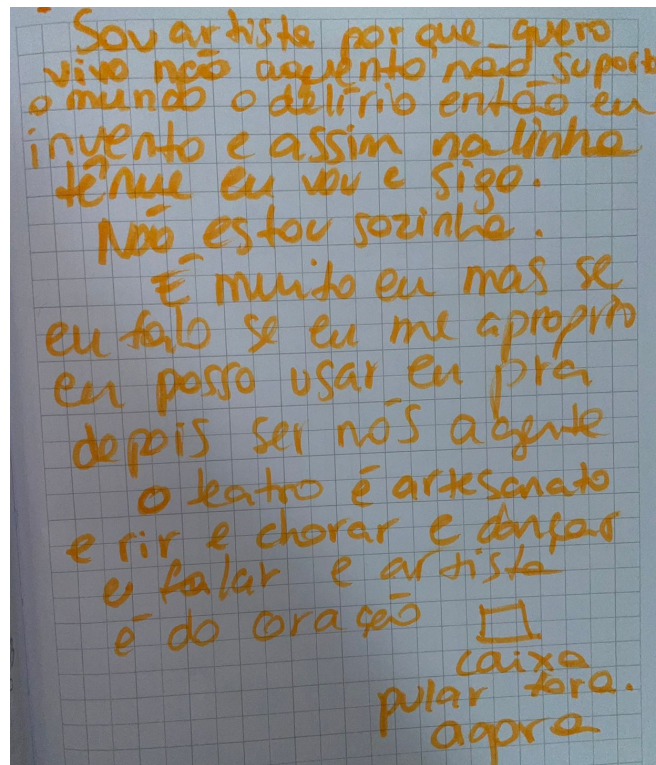 Sou artista por que quero
vivo não aguento não suporto
o mundo o delírio então eu
invento e assim na linha
tênue eu vou e sigo.
Não estou sozinha.
É muito eu mas se
eu falo se eu me aproprio
eu posso usar eu pra
depois ser nós a agente
o teatro é artesanato
e rir e chorar e dançar
e falar e artista
é do coração
caixa
pular fora.
agora